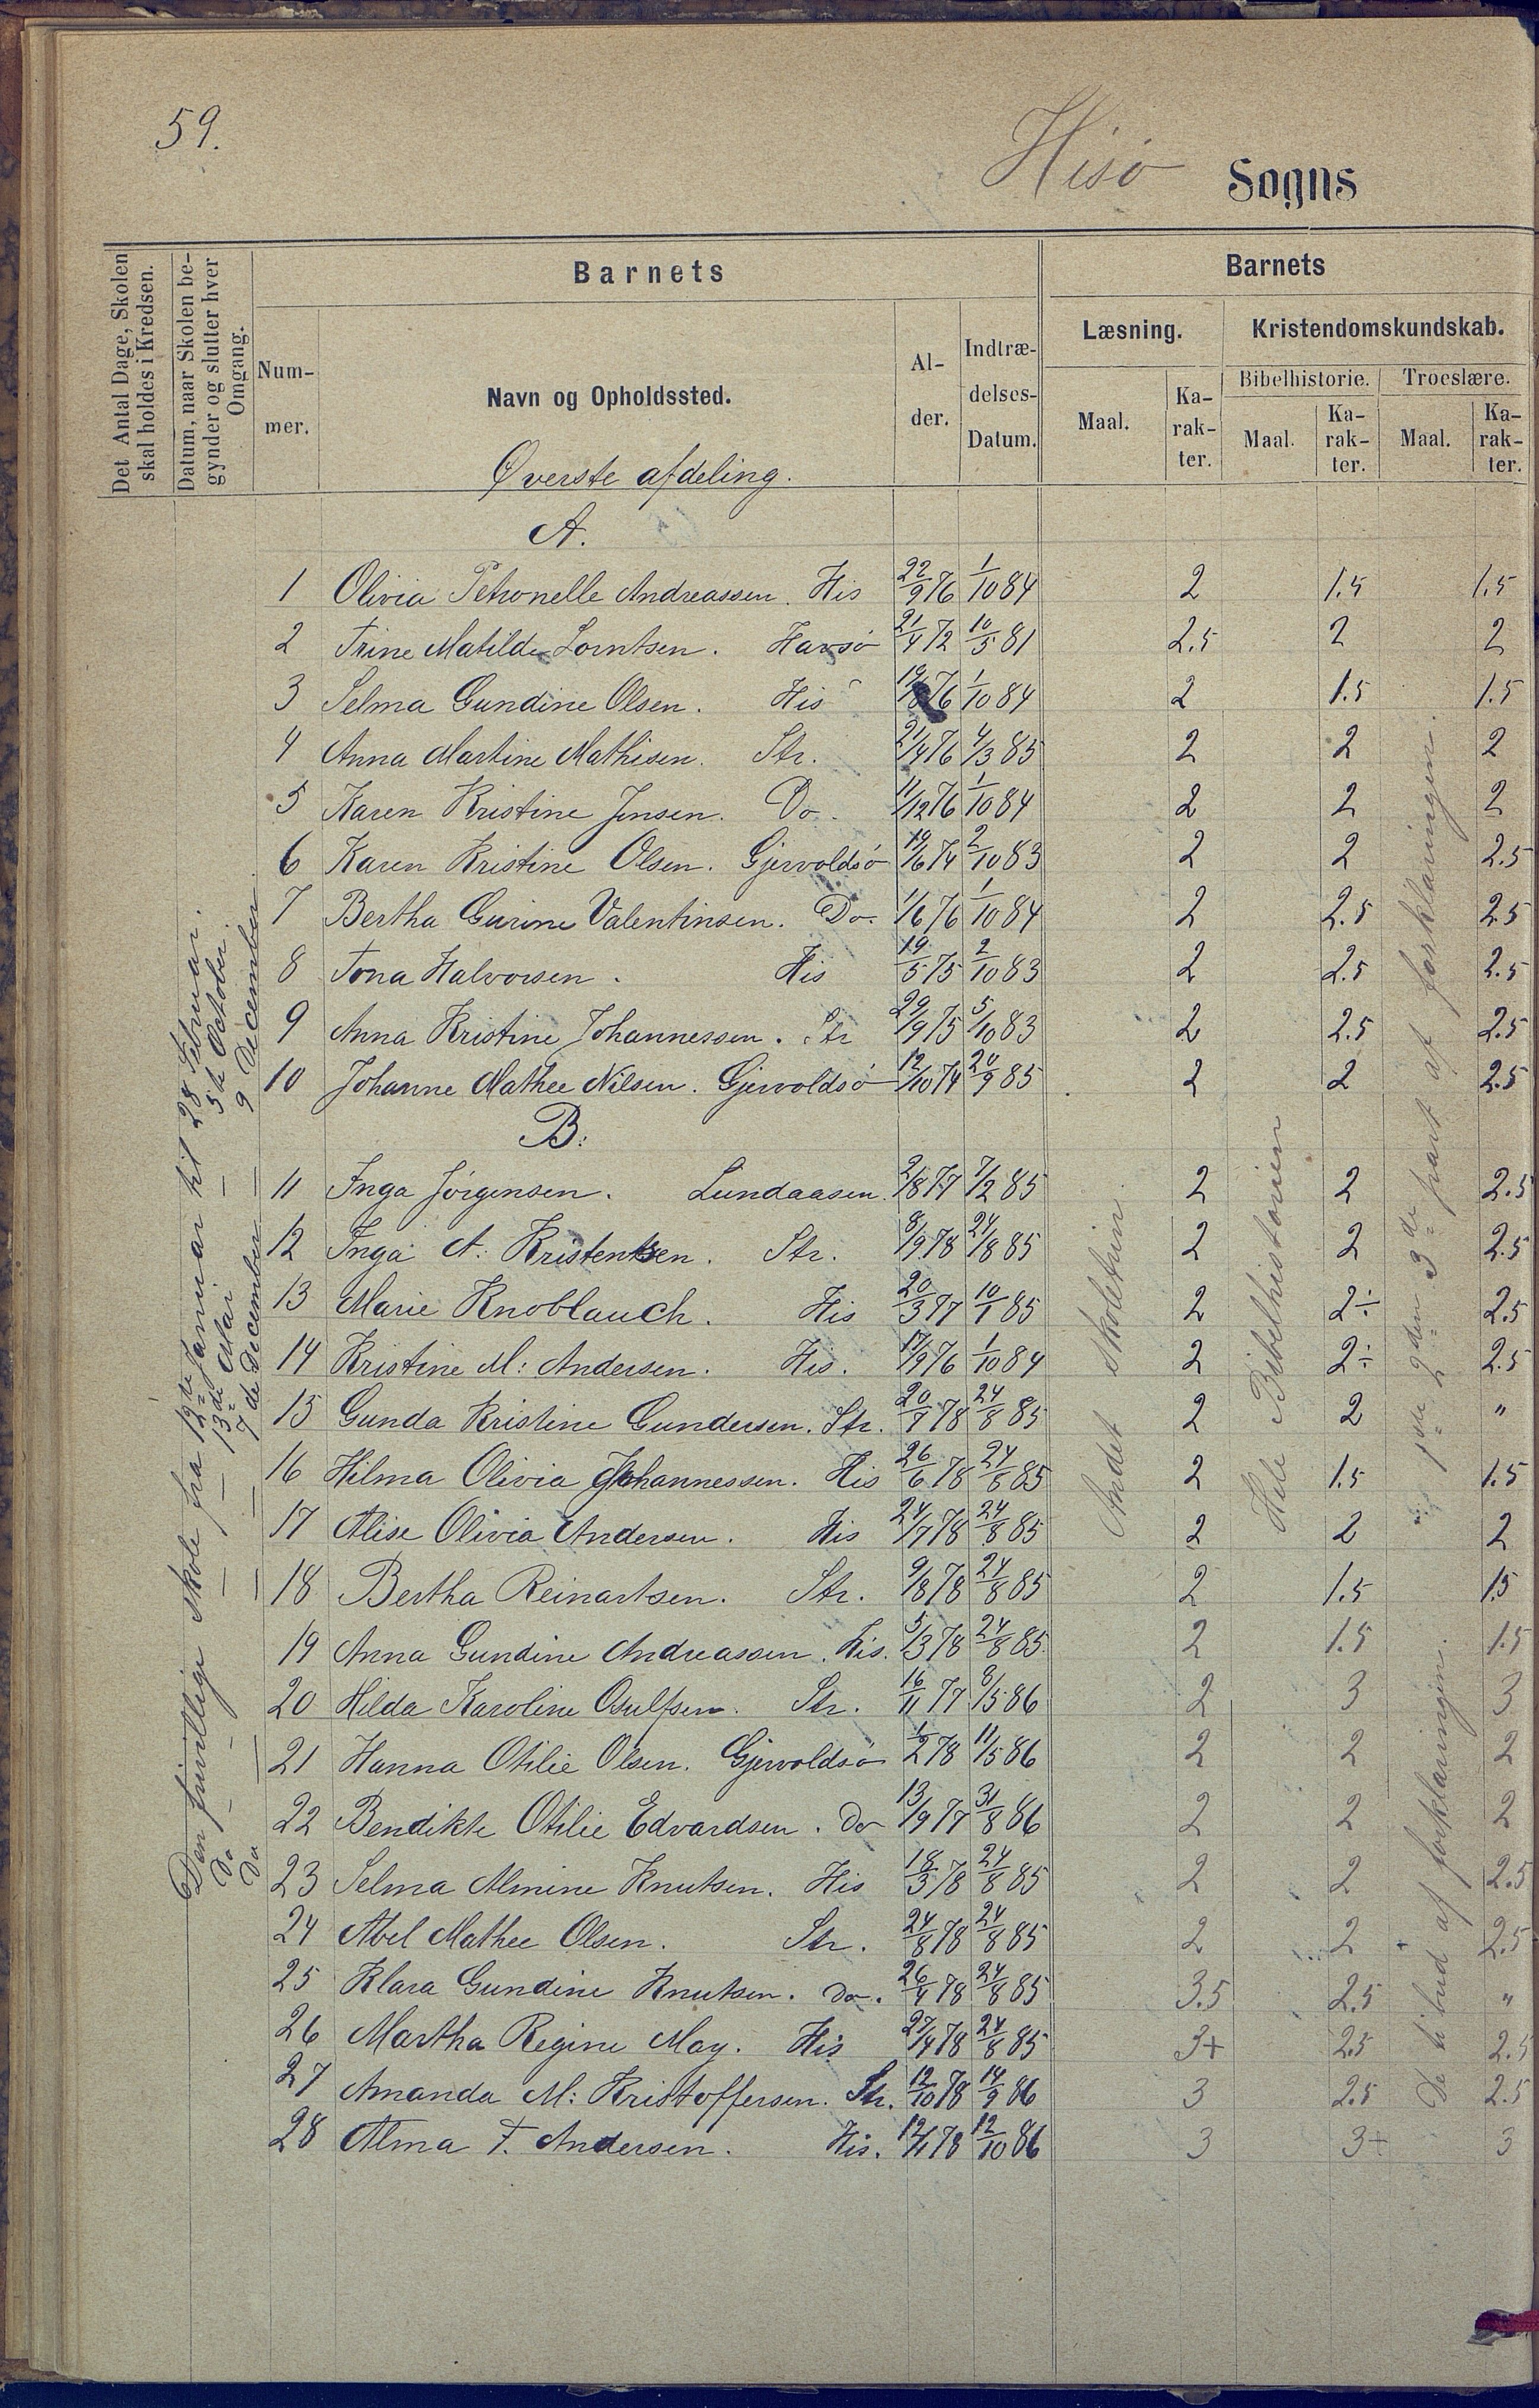 59.
Hisø Sogns
Det Antal Dage, Skolen skal holdes i Kredsen.
Datum, naar Skolen begynder og slutter hver Omgang.
Barnets
Barnets
Nummer.
Navn og Opholdssted.
Alder.
Indtrædelses-Datum.
Læsning.
Kristendomskundskab.
Maal.
Karakter.
Bibelhistorie.
Troeslære.
Maal.
Karakter.
Maal.
Karakter.
Øverste afdeling.
A.
1 Olivia Petronelle Andreassen. His 22/9 76 1/10 84 2 1.5 1.5
2 Trine Matilde Lorntsen. Havsø 21/4 72 10/5 81 2.5 2 2
3 Selma Gundine Olsen. His 19/8 76 1/10 84 2 1.5 1.5
4 Anna Martine Mathisen. Str. 21/4 76 4/3 85 2 2 2
5 Karen Kristine Jensen. Do. 11/12 76 1/10 84 2 2 2
6 Karen Kristine Olsen. Gjervoldsø 19/6 74 2/10 83 2 2 2.5
7 Bertha Gurine Valentinsen. Do. 1/6 76 1/10 84 2 2.5 2.5
8 Tona Halvorsen. His 19/5 75 2/10 83 2 2.5 2.5
9 Anna Kristine Johannessen. Str 29/9 75 5/10 83 2 2.5 2.5
10 Johanne Mathee Nilsen. Gjervoldsø 12/10 74 20/9 85 2 2 2.5
B:
11 Inga Jørgensen. Lundaasen. 2/8 77 7/2 85 2 2 2.5
12 Inga A: Kristentsen. Str. 8/9 78 24/8 85 2 2 2.5
13 Marie Knoblauch. His 20/3 77 10/1 85 2 2÷ 2.5
14 Kristine M: Andersen. His. 17/9 76 1/10 84 2 2÷ 2.5
15 Gunda Kristine Gundersen. Str. 20/7 78 24/8 85 2 2 "
16 Hilma Olivia Johannessen. His 26/6 78 24/8 85 2 1.5 1.5
17 Alise Olivia Andersen. His 24/7 78 24/8 85 2 2 2
18 Bertha Reinartsen. Str. 9/8 78 24/8 85 2 1.5 1.5
19 Anna Gundine Andreassen. His. 5/3 78 24/8 85 2 1.5 1.5
20 Hilda Karoline Osulfsen. Str. 16/11 77 8/5 86 2 3 3
21 Hanna Otilie Olsen. Gjervoldsø 1/2 78 11/5 86 2 2 2
22 Bendikte Otilie Edvardsen. Do 13/9 77 31/8 86 2 2 2
23 Selma Almine Knutsen. His 18/3 78 24/8 85 2 2 2.5
24 Abel Mathee Olsen. Str. 24/8 78 24/8 85 2 2 2.5
25 Klara Gundine Knutsen. Do. 26/4 78 24/8 85 3.5 2.5 "
26 Martha Regine May. His 27/4 78 24/8 85 3+ 2.5 2.5
27 Amanda M: Kristoffersen. Str. 12/10 78 14/9 86 3 2.5 2.5
28 Alma F. Andersen. His. 12/11 78 12/10 86 3 3+ 3
Den frivillige skole fra 12te Januar til 28 Februar.
Do — 13de Mai — 5te October.
Do — 7de December — 9 December
Andet skoletrin.
Hele Bibelhistorien
1ste 2den 3de part af forklaringen.
De ti bud af forklaringen.